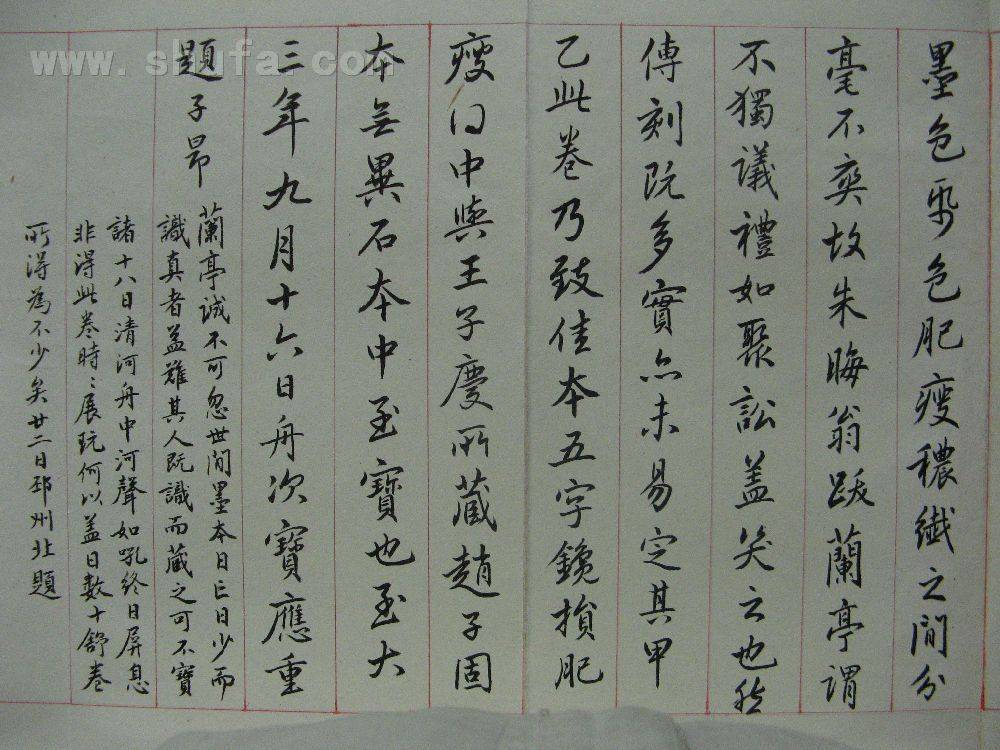 墨色紙色肥瘦穠纖之間分
毫不爽故朱晦翁跋蘭亭謂
不獨議禮如聚訟蓋笑之也然
傳刻既多實亦未易定其甲
乙此卷乃致佳本五字鑱損肥
瘦得中與王子慶所藏趙子固
本無異石本中至寶也至大
三年九月十六日舟次寶應重
題子昂
蘭亭誠不可忽世間墨本日亡日少而
識真者蓋難其人既識而藏之可不寶
諸十八日清河舟中河聲如吼終日屏息
非得此卷時〻展玩何以蓋日數十舒卷
所得為不少矣廿二日邳州北題
www.shufa.com